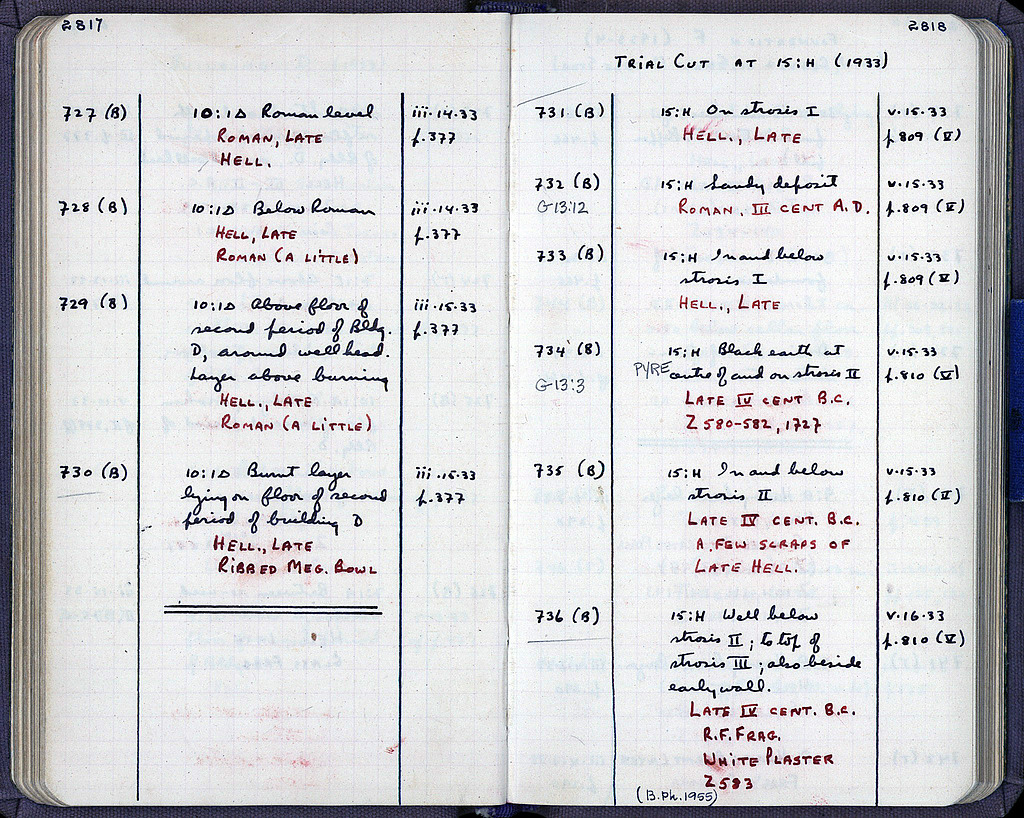 2817
727 (B) 10:1D Roman level iii.14.33
ROMAN, LATE f.377
HELL.
728 (B) 10:1D Below Roman iii.14.33
HELL, LATE f.377
ROMAN (A LITTLE)
729 (B) 10:1D Above floor of iii.15.33
second period of Bldg. f.377
D, around wellhead.
Layer above burning
HELL., LATE
ROMAN (A LITTLE)
730 (B) 10:1D Burnt layer iii.15.33
lying on floor of second f.377
period of building D
HELL., LATE
RIBBED MEG. BOWL
2818
TRIAL CUT AT 15:H (1933)
731 (B) 15:H On strosis I v.15.33
HELL., LATE f.809 (V)
732 (B) 15:H Sandy deposit v.15.33
G13:12 ROMAN, III CENT A.D. f.809 (V)
733 (B) 15:H In and below v.15.33
strosis I f.809 (V)
HELL., LATE
734 (B) 15:H Black earth at v.15.33
G13:3 PYRE centre of and on strosis II f.810 (V)
LATE IV CENT B.C.
Z 580-582, 1727
735 (B) 15:H In and below v.15.33
strosis II f.810 (V)
LATE IV CENT. B.C.
A FEW SCRAPS OF
LATE HELL.
736 (B) 15:H Well below v.16.33
strosis II; to top of f.810 (V)
strosis III; also beside
early wall.
LATE IV CENT. B.C.
R.F. FRAG.
WHITE PLASTER
Z 583
(B.Ph. 1955)